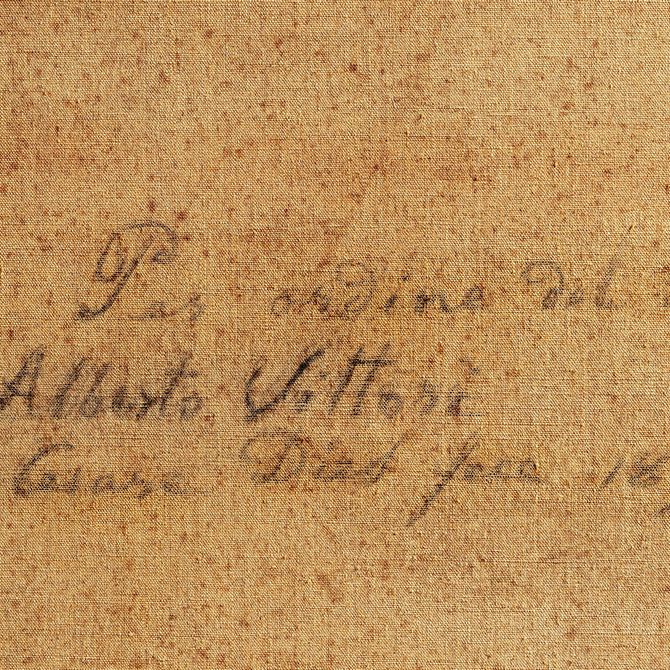 Per ordine del
Alberto Vittori
Cesare Dies fece 18